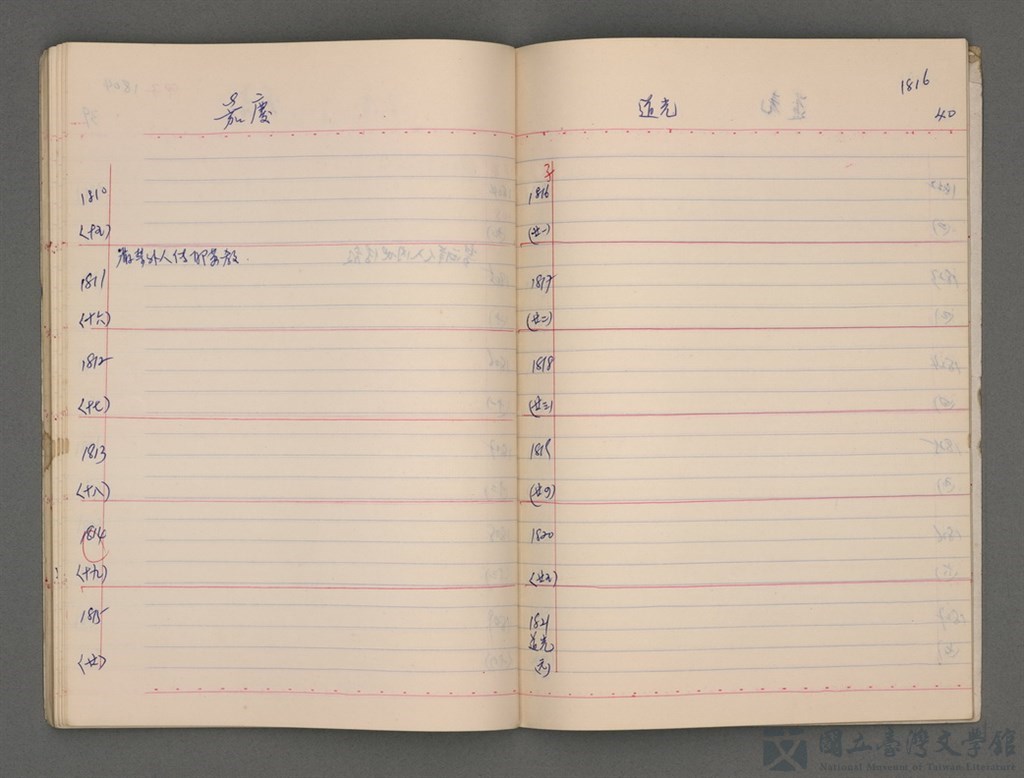 嘉慶
1810
(十五)
嚴禁外人傳耶蘇教.
1811
(十六)
1812
(十七)
1813
(十八)
1814
(十九)
1815
(廿)
1816
道光
40
子
1816
(廿一)
1817
(廿二)
1818
(廿三)
1819
(廿四)
1820
(廿五)
1821
道光
元)
國立臺灣文學館
National Museum of Taiwan Literature